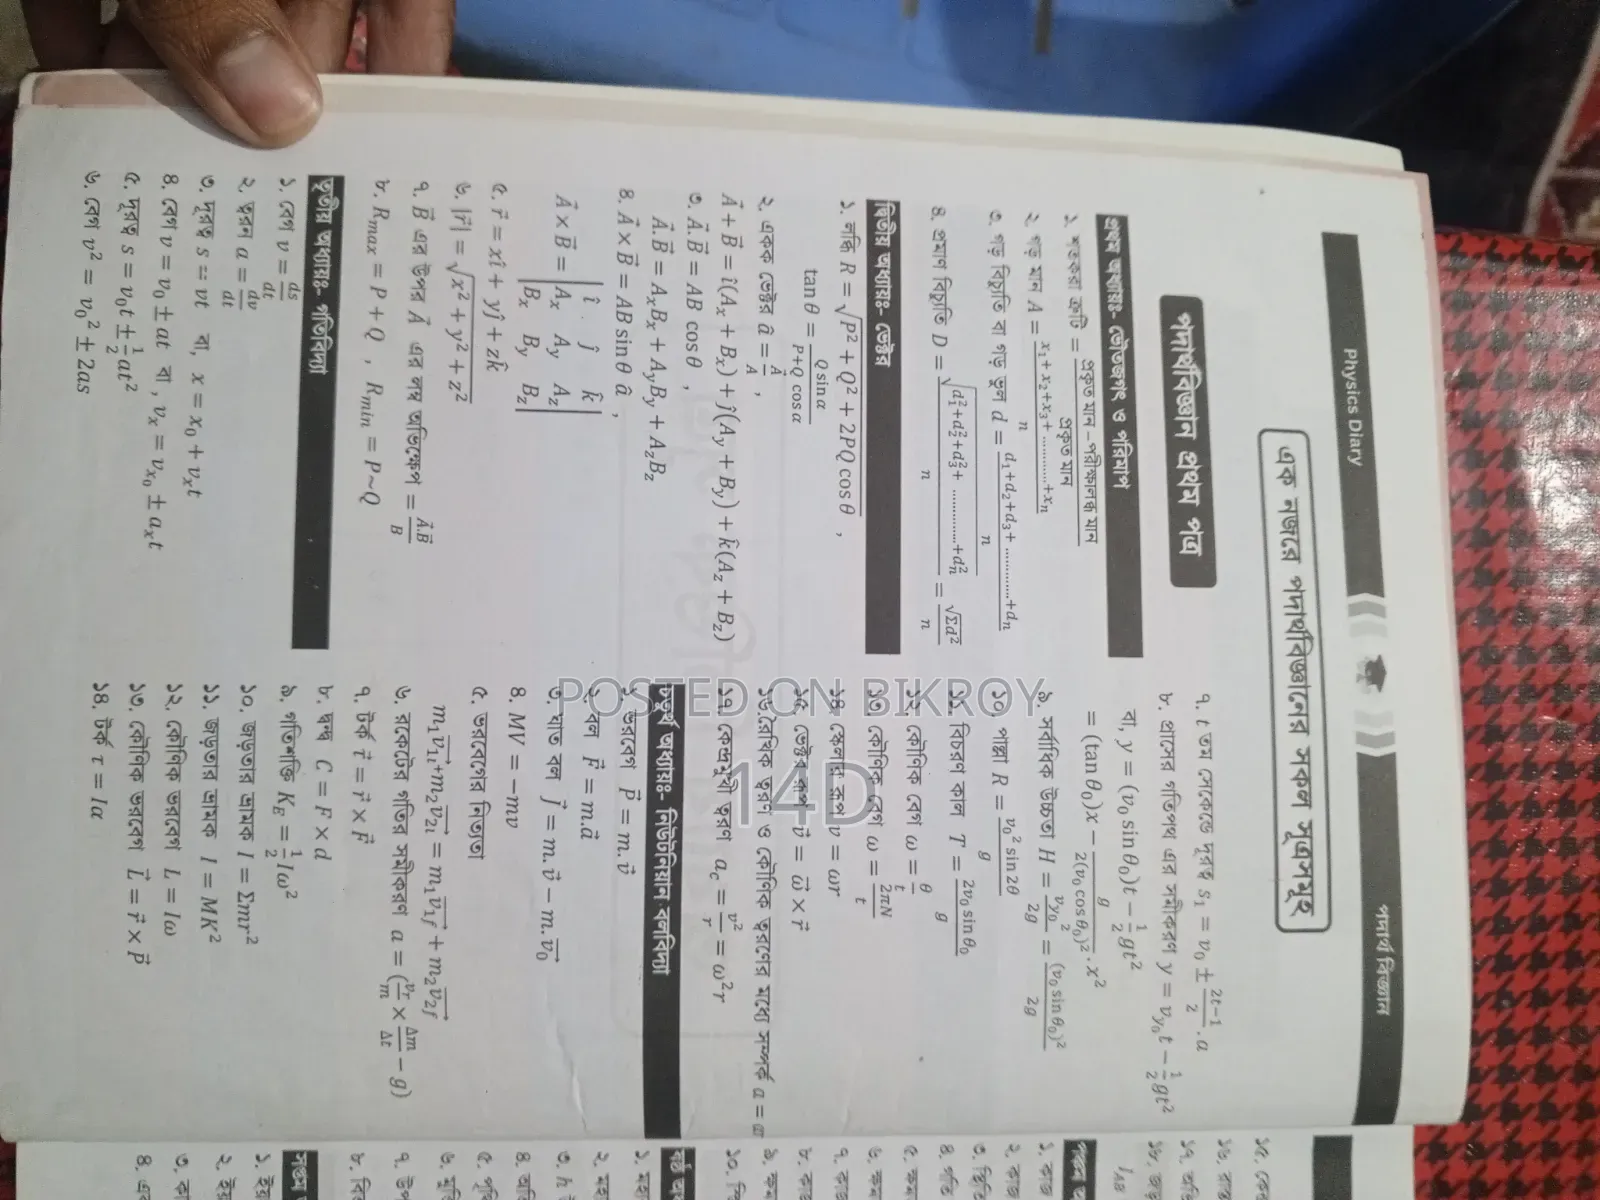 Physics Diary
পদার্থ বিজ্ঞান
এক নজরে পদার্থবিজ্ঞানের সকল সূত্রসমূহ
পদার্থবিজ্ঞান প্রথম পত্র
প্রথম অধ্যায়ঃ- ভৌতজগৎ ও পরিমাপ
১. শতকরা ত্রুটি = প্রকৃত মান − পরীক্ষালব্ধ মান / প্রকৃত মান
২. গড় মান A = x₁ + x₂+x₃+ ............+xₙ / n
৩. গড় বিচ্যুতি বা গড় ভুল d = d₁+d₂+d₃+ ..............+dₙ / n
৪. প্রমাণ বিচ্যুতি D = √d₁²+d₂²+d₃²+ ..............+dₙ² / n = √Σd² / n
দ্বিতীয় অধ্যায়ঃ- ভেক্টর
১. লব্ধি R = √P² + Q² + 2PQ cos θ ,
tan θ = Q sin α / P+Q cos α
২. একক ভেক্টর â = A⃗ / A ,
A⃗ + B⃗ = î(Aₓ + Bₓ) + ĵ(A_y + B_y) + k̂(A_z + B_z)
৩. A⃗.B⃗ = AB cos θ ,
A⃗.B⃗ = AₓBₓ + A_yB_y + A_zB_z
৪. A⃗ × B⃗ = AB sin θ â ,
A⃗ × B⃗ = | î . ĵ k̂ |
| Aₓ A_y A_z |
| Bₓ B_y B_z |
৫. r⃗ = xî + yĵ + zk̂
৬. |r⃗| = √x² + y² + z²
৭. B⃗ এর উপর A⃗ এর লম্ব অভিক্ষেপ = A⃗.B⃗ / B
৮. R_max = P + Q , R_min = P~Q
তৃতীয় অধ্যায়ঃ- গতিবিদ্যা
১. বেগ v = ds/dt
২. ত্বরন a = dv/dt
৩. দূরত্ব s = vt বা, x = x₀ + vₓt
৪. বেগ v = v₀ ± at বা , vₓ = vₓ₀ ± aₓt
৫. দূরত্ব s = v₀t ± 1/2 at²
৬. বেগ v² = v₀² ± 2as
৭. t তম সেকেন্ডে দূরত্ব s₁ = v₀ ± 2t−1/2 . a
৮. প্রাসের গতিপথ এর সমীকরণ y = v_y₀t − 1/2 gt²
বা, y = (v₀ sin θ₀)t − 1/2 gt²
= (tan θ₀)x − g / 2(v₀ cos θ₀)² . x²
৯. সর্বাধিক উচ্চতা H = v_y₀² / 2g = (v₀ sin θ₀)² / 2g
১০. পাল্লা R = v₀² sin 2θ / g
১১. বিচরণ কাল T = 2v₀ sin θ₀ / g
১২. কৌণিক বেগ ω = θ/t
১৩. কৌণিক বেগ ω = 2πN / t
১৪. স্কেলার রূপ v = ωr
১৫. ভেক্টর রূপ v⃗ = ω⃗ × r⃗
১৬.রৈখিক ত্বরণ ও কৌণিক ত্বরণের মধ্যে সম্পর্ক a =
১৭. কেন্দ্রমুখী ত্বরণ a_c = v²/r = ω²r
চতুর্থ অধ্যায়ঃ- নিউটনিয়ান বলবিদ্যা
১. ভরবেগ P⃗ = m. v⃗
২. বল F⃗ = m.a⃗
৩. ঘাত বল J⃗ = m. v⃗ − m. v₀⃗
৪. MV = −mv
৫. ভরবেগের নিত্যতা
m₁v₁ᵢ⃗+m₂v₂ᵢ⃗ = m₁v₁f⃗ + m₂v₂f⃗
৬. রকেটের গতির সমীকরণ a = (v_r/m × Δm/Δt − g)
৭. টর্ক τ⃗ = r⃗ × F⃗
৮. দ্বন্দ্ব C = F × d
৯. গতিশক্তি K_E = 1/2 Iω²
১০. জড়তার ভ্রামক I = Σmr²
১১. জড়তার ভ্রামক I = MK²
১২. কৌণিক ভরবেগ L = Iω
১৩. কৌণিক ভরবেগ L⃗ = r⃗ × P⃗
১৪. টর্ক τ = Iα
POSTED ON BIKROY
14D